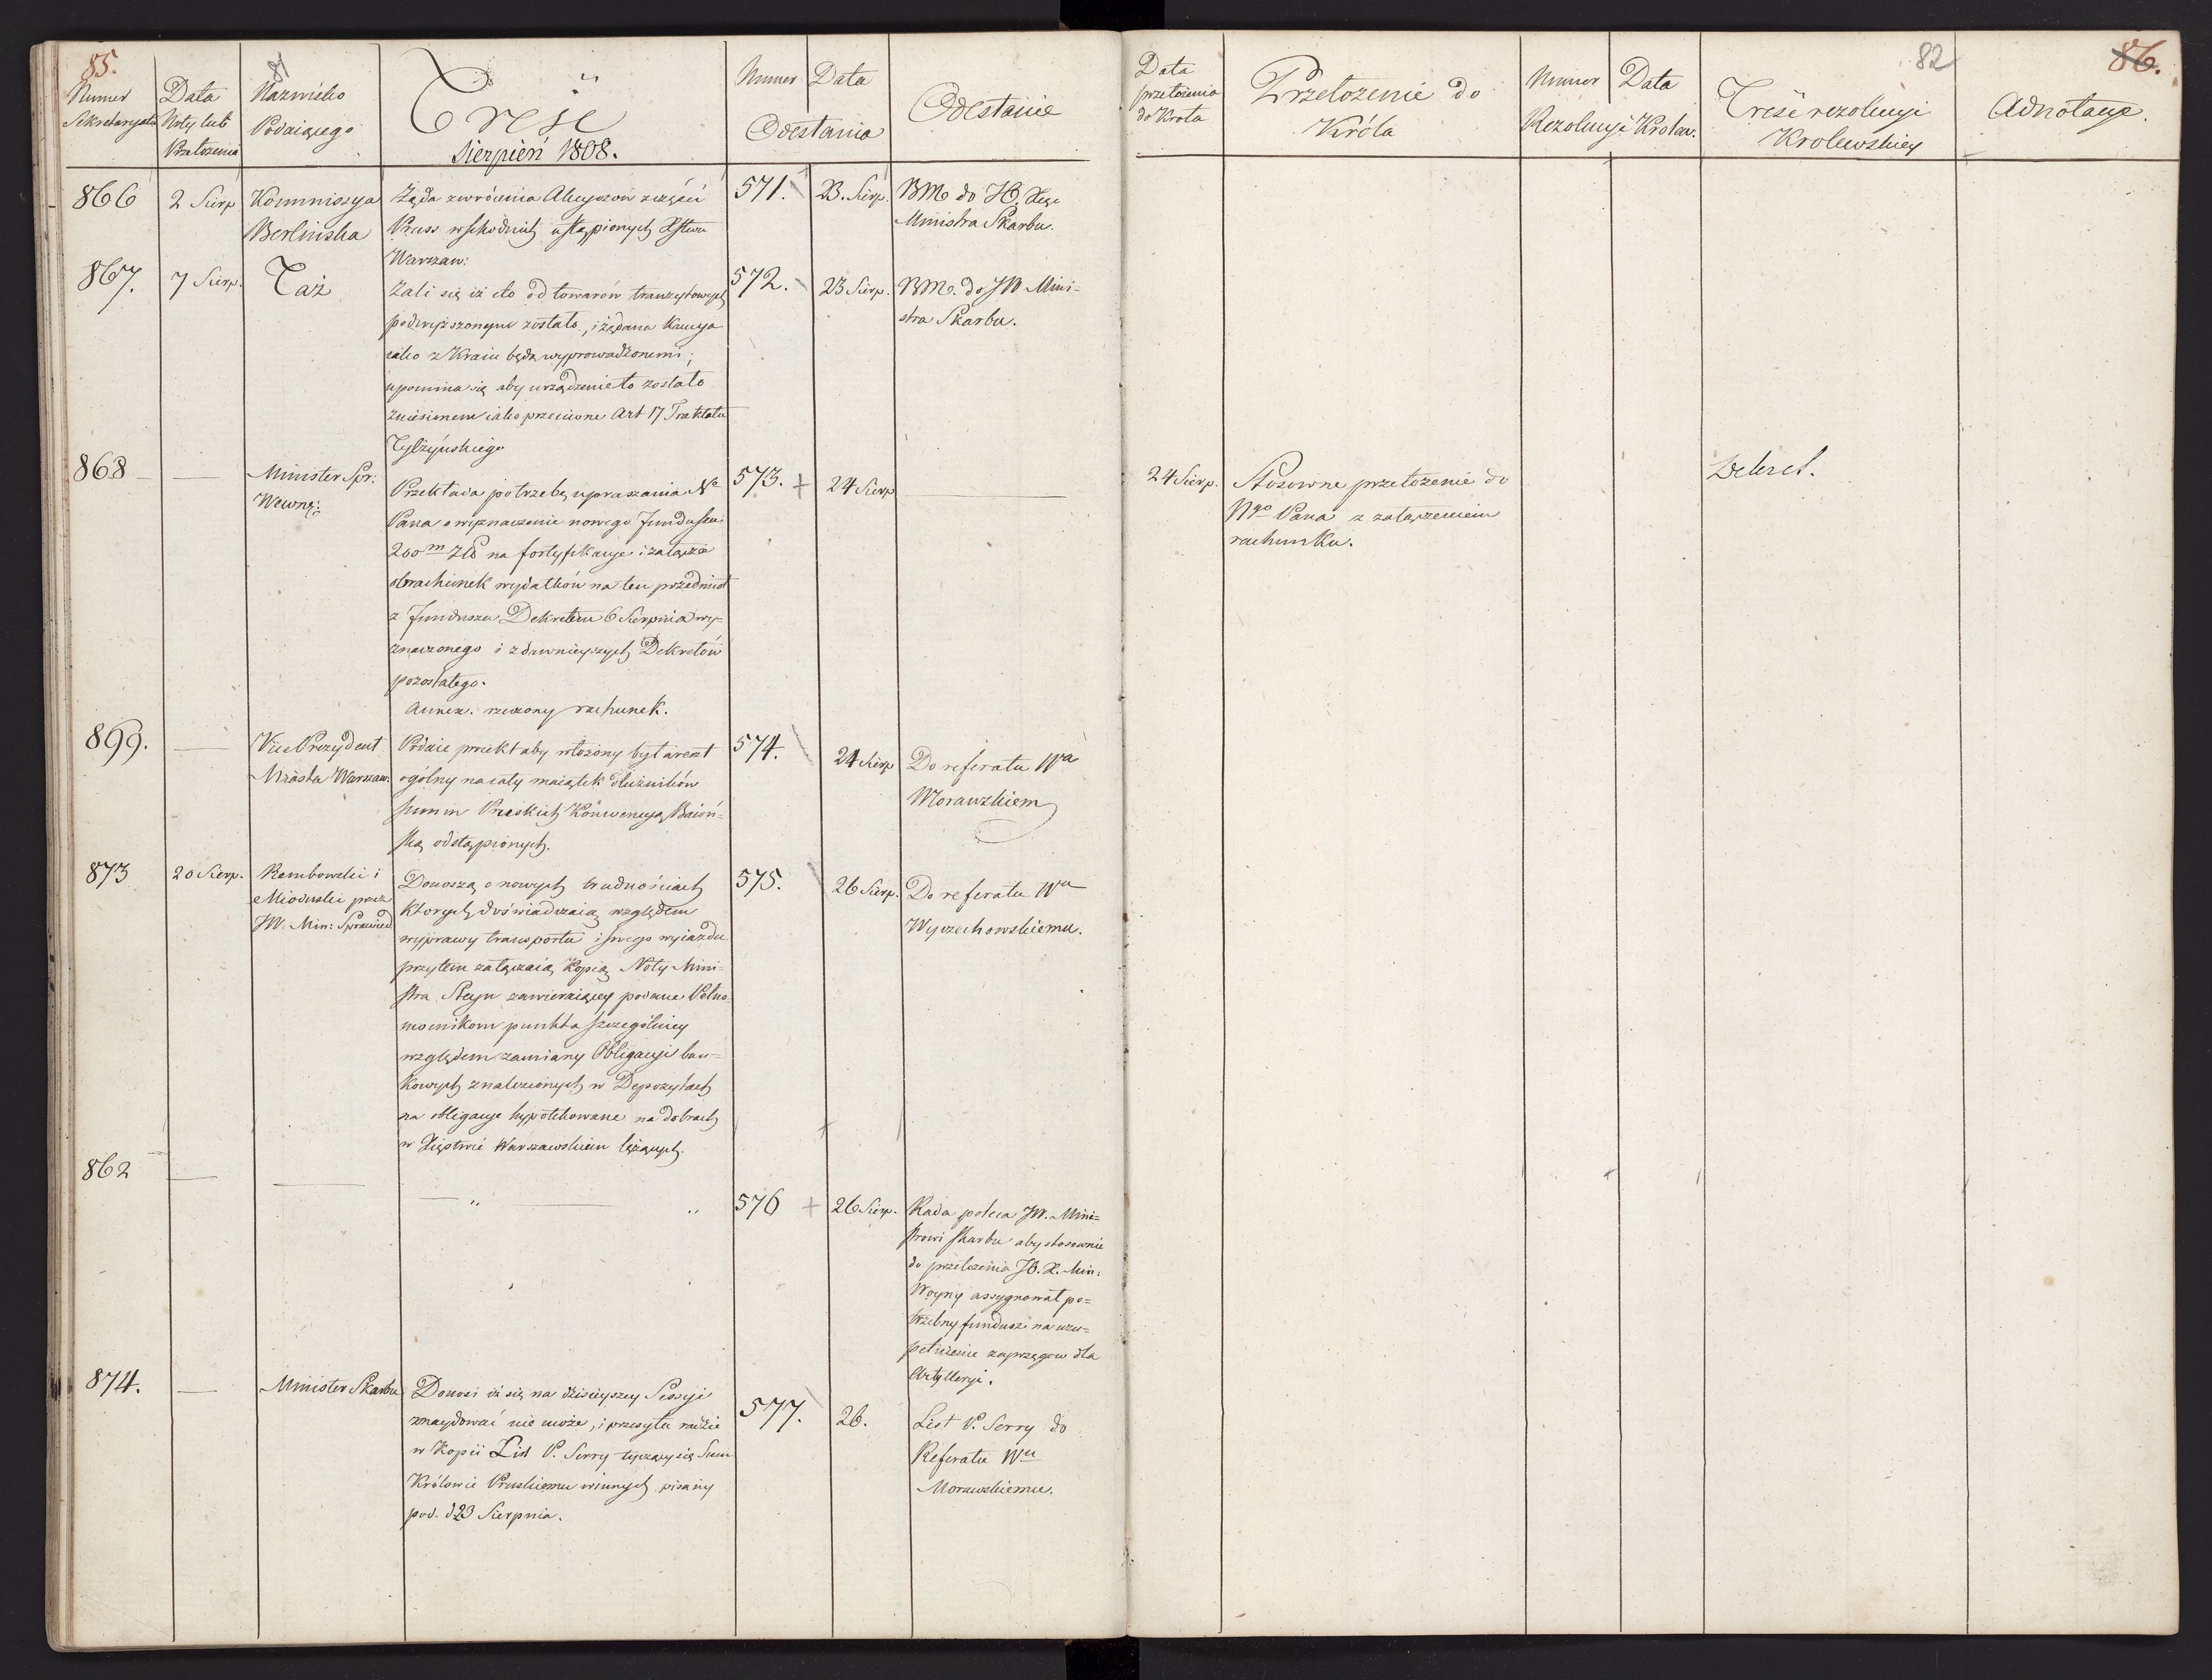 85.
81
Numer
Sekretaryatu
Data
Noty lub
Przełożenia
Nazwisko
Podaiącego
Treść
Sierpień 1808.
Numer Data
Odesłania
Odesłanie
866 2 Sierp Kommissya
Berlińska
Żąda zwrócenia z części
Pruss wschodnich ustąpionych Xstwu
Warszaw:
571. 23. Sierp. BM do JO, Xcia
Ministra Skarbu.
867. 7 Sierp. Taż
Żali się iż cło od towarów tranzytowych
podwyższonym zostało, i żądana Kaucya
iako z Kraiu będą wyprowadzonemi;
upomina się aby urządzenie to zostało
zniesionem iako przeciwne Art 17 Traktatu
Tylżyńskiego
572. 23 Sierp. BM. do JW Mini-
stra Skarbu.
868 — — Minister Spr:
Wewnę:
Przekłada potrzebę upraszania No
Pana o wyznaczenie nowego funduszu
200m Zł na fortyfikacye i załącza
obrachunek wydatków na ten przedmiot
z funduszu Dekretem 6 Sierpnia wy-
znaczonego i z dawnieyszych Dekretów
pozostałego.
Annex. rzeczony rachunek.
573. + 24 Sierp —
899. — Vice Prezydent
Miasta Warszaw.
Podaie proiekt aby włożony był areszt
ogólny na cały maiątek dłużników
summ Pruskich Konwencyą Baioń-
ską odstąpionych.
574. 24 Sierp Do referatu Wu
Morawskiem
873 20 Sierp. Rembowski i
Mioduski przez
JW. Min: Sprawied
Donoszą o nowych trudnościach
ktorych doświadczaią względem
wyprawy transportu i swego wyiazdu
przytem załączaią Kopią Noty Mini-
stra Steyn zawieraiącey podane Pełno-
mocnikom punkta szczególniey
względem zamiany Obligacyi ban-
kowych znalezionych w Depozytach
na obligacye hypotekowane na dobrach
w Xięstwie Warszawskiem leżących.
575. 26 Sierp. Do referatu Wu
Wyczechowskiemu.
862 — — — „ — „
576 + 26 Sierp. Rada poleca JW. Mini-
strowi Skarbu aby stosownie
do przełożenia JO. X. Min:
Woyny assygnował po-
trzebny fundusz na uzu-
pełnienie zaprzęgow dla
Artylleryi.
874. — Minister Skarbu
Donosi iż się na dzisieyszey Sessyi
znaydować nie może, i przesyła radzie
w Kopii List P. Serry tyczący się Summ
Królowi Pruskiemu winnych pisany
pod. d 23 Sierpnia.
577. 26. List P. Serry do
Referatu Wu
Morawskiemu.
82
86.
Data
przełożenia
do Krola
Przełożenie do
Króla
Numer Data
Rezolucyi Krolew.
Treść rezolucyi
Krolewskiey
Adnotacye.
24 Sierp. Stosowne przełożenie do
Ngo Pana z załączeniem
rachunku.
Dekret.